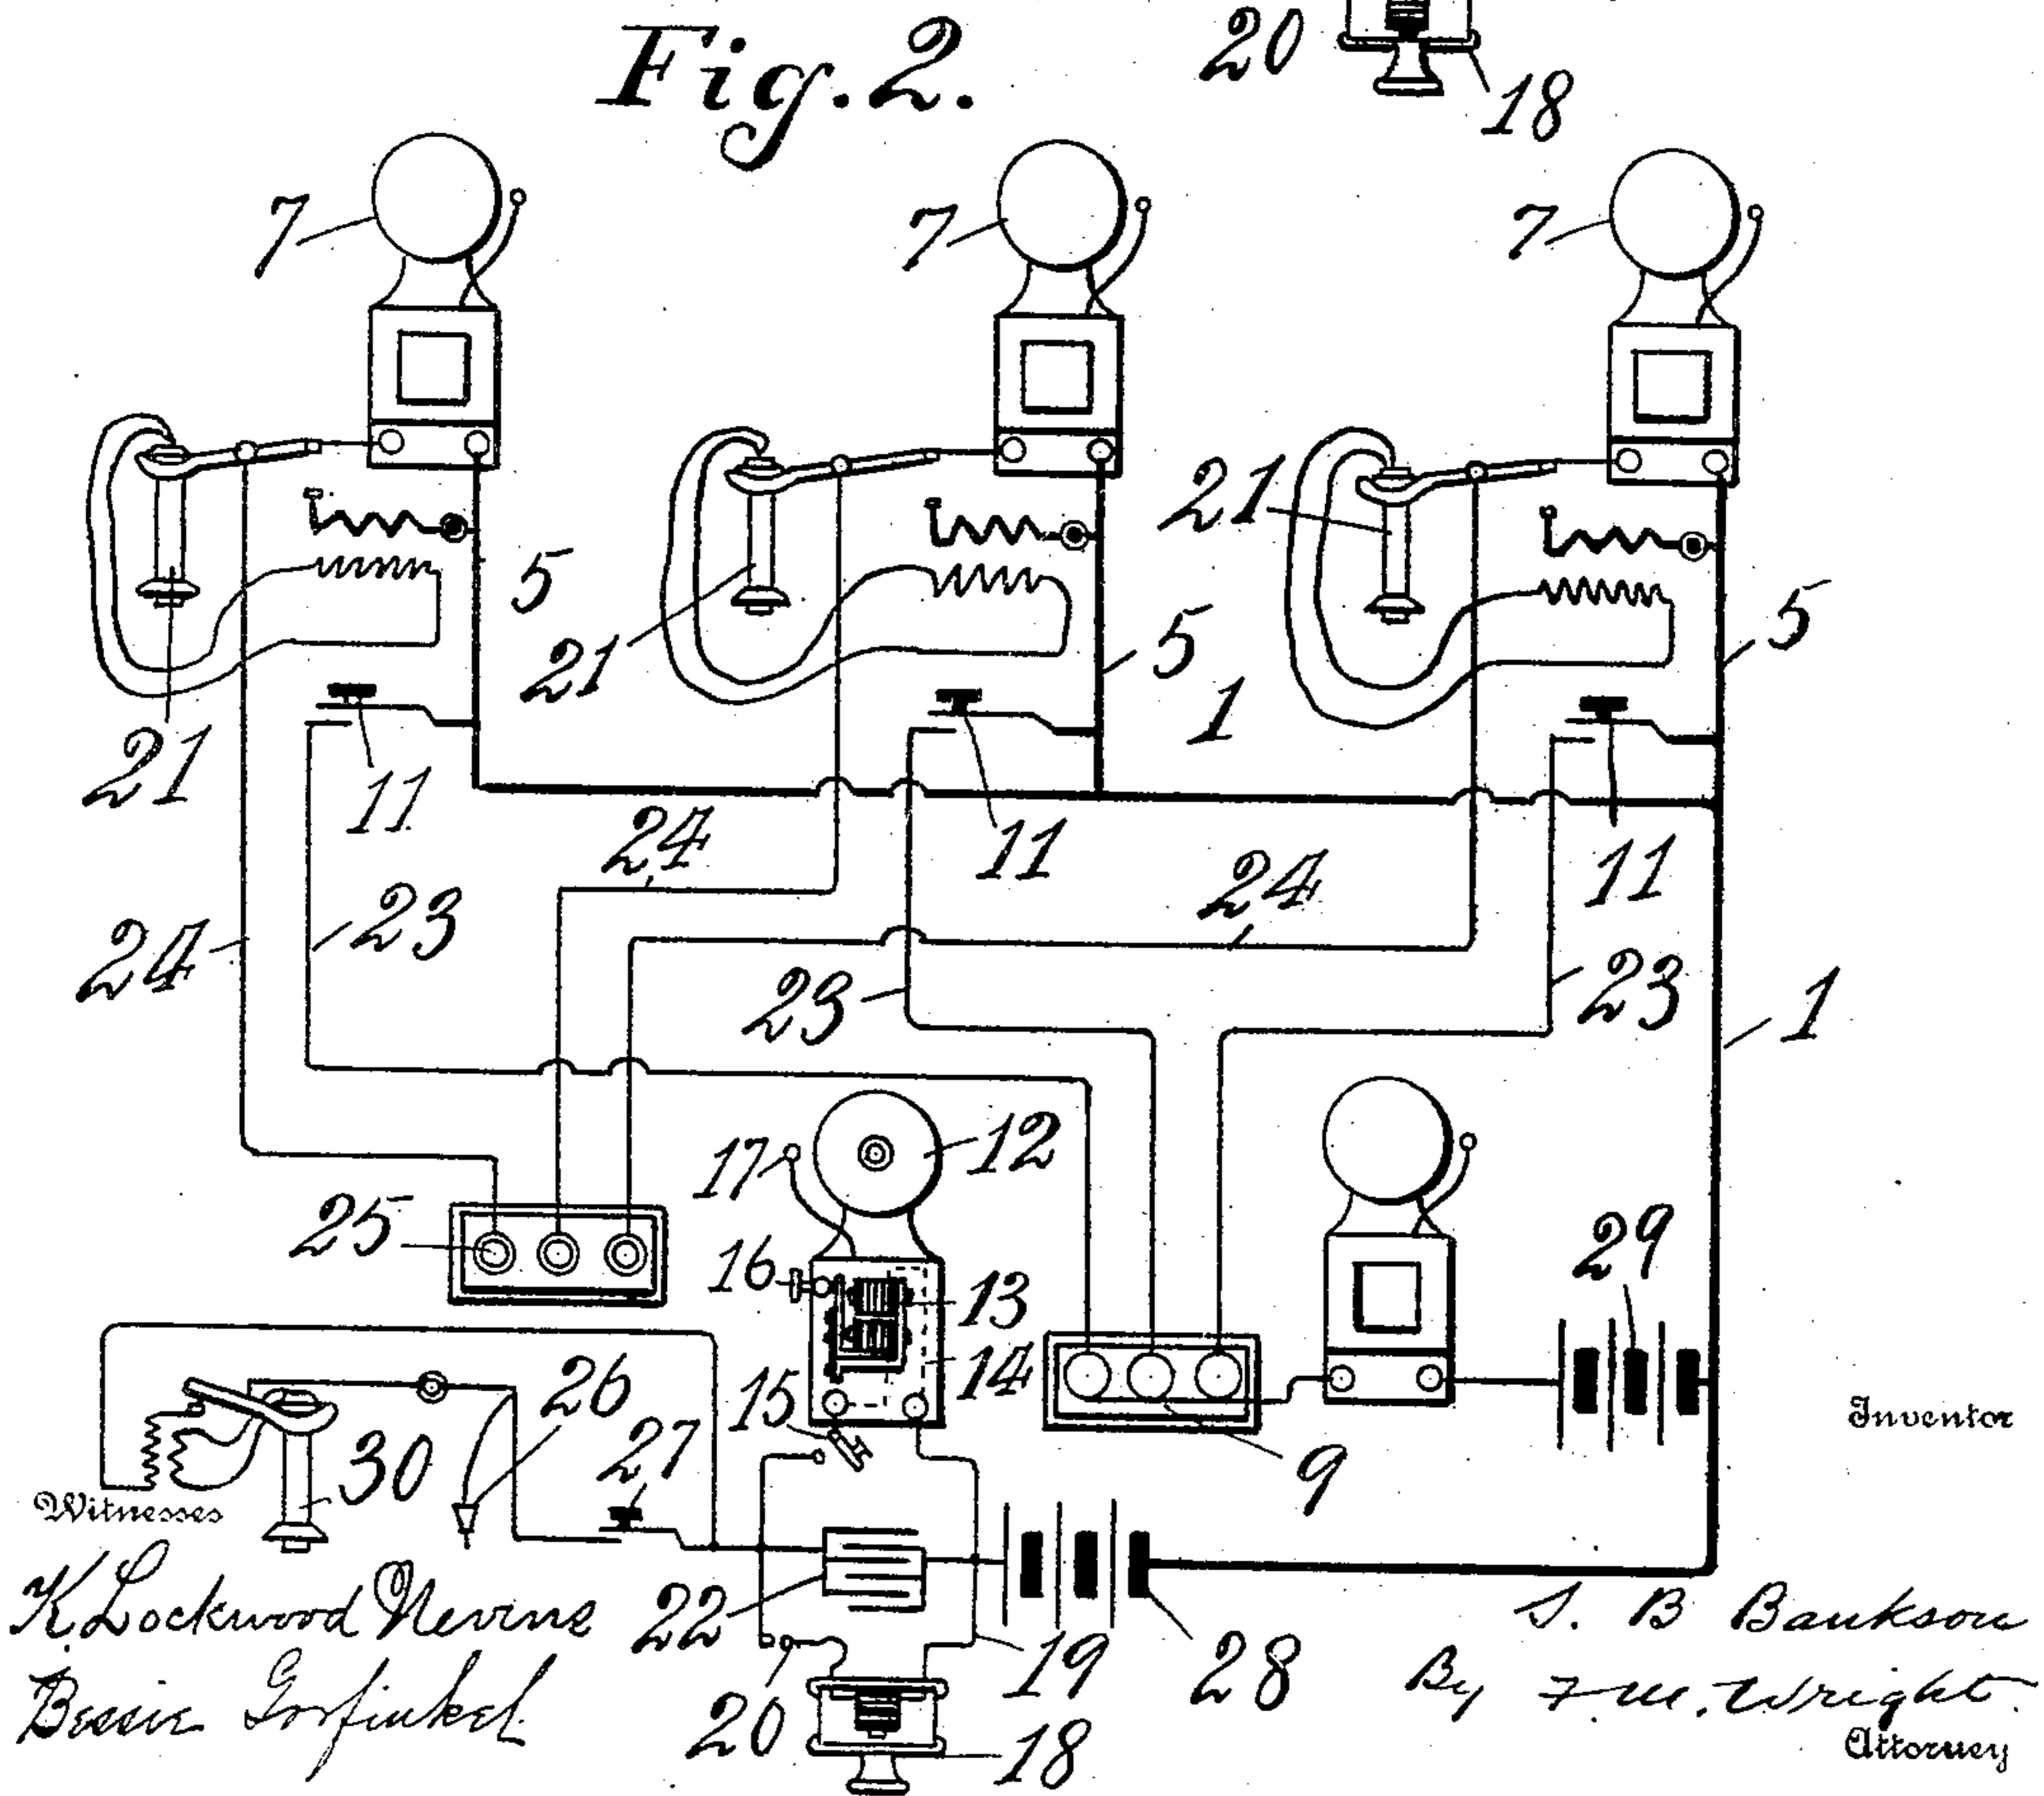 20
18
Fig. 2.
7 7 7
5
21
21
21
5
5
1
11
11
11
24
24
24
23
23
23
1
25
17
12
16
13
14
15
29
9
26
27
30
22
20
19
28
18
Inventor
Witnesses
K. Lockwood Nevins
Bessie Gorfinkel
S. B Bankson
By F. M. Wright.
Attorney